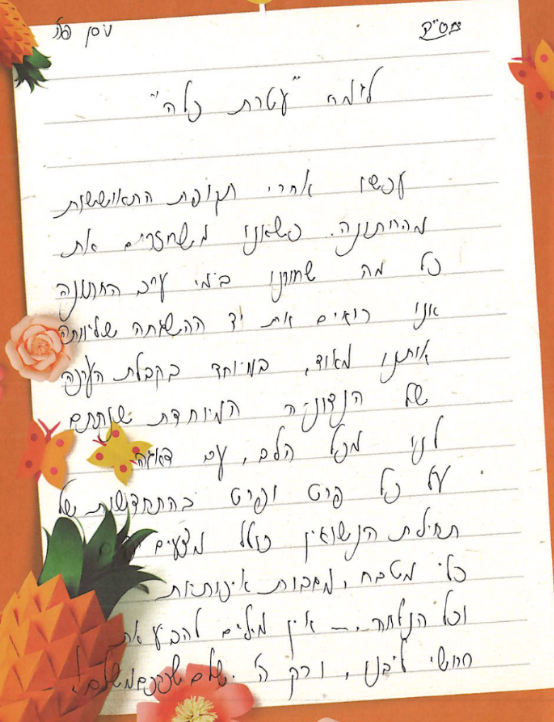 בס"ד
ניסן
לגמח "עטרת כלה"
עכשיו אחרי תקופת ההתאוששות
מהחתונה. כשאנו משחזרים את
כל מה שחווינו בימי ערב החתונה
אנו רואים את יד ההשגחה שליוותה
אותנו מאוד, במיוחד בקבלת הערכה
של הנדוניה המיוחדת שנתתם
לנו מכל הלב, עם דאגה
על כל פרט ופרט בהתחדשות של
תחילת הנשואין כולל מצעים
כלי מטבח, מגבות איכותיות
וכל אין מילים להביע את
רחשי ליבנו, ורק ה' ישלם